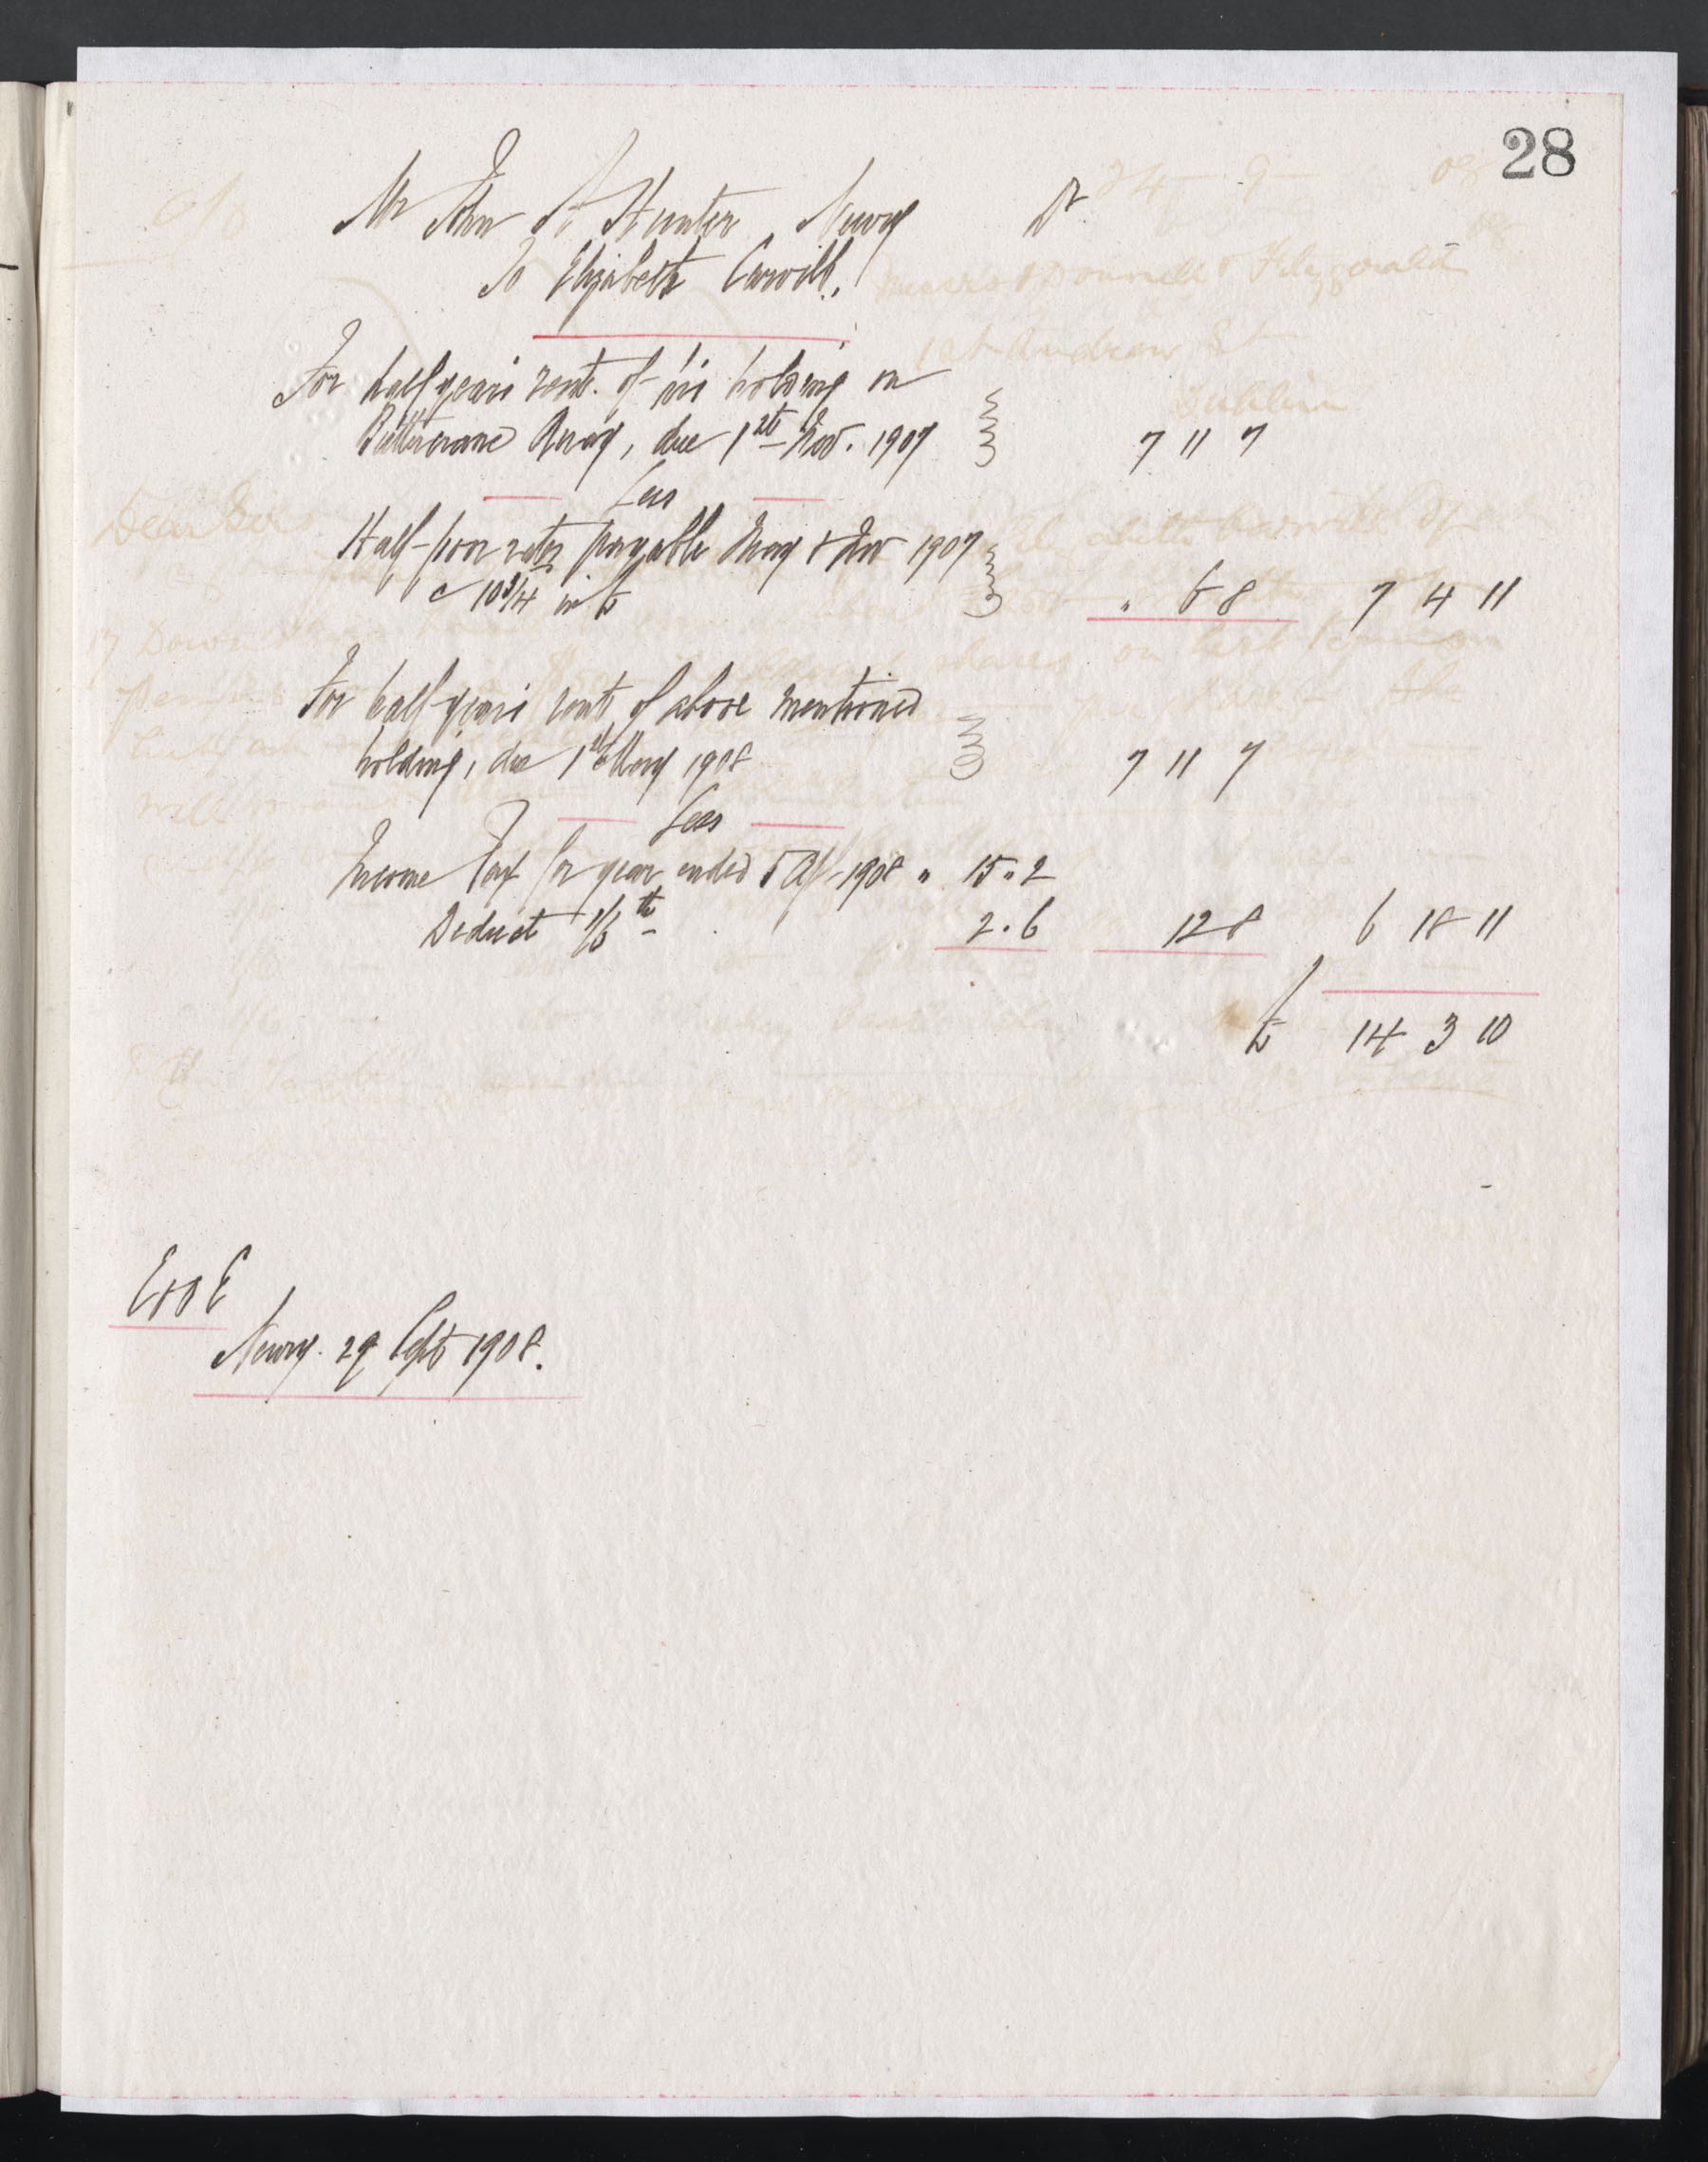 28
Mr John A Hunter Newry Dr
To Elizabeth Carvill,
For half years rent of his holding on
Buttercrane Quay, due 1st Nov. 1907 7 11 7
Less
Half-poor rates payable May & Nov 1907
@ 10 3/4 in £ " 6 8 7 4 11
For half years rent of above mentioned
holding, due 1st May 1908 7 11 7
Less
Income Tax for year ended 5 Apl 1908 " 15 " 2
Deduct 1/6th 2 . 6 12 8 6 18 11
£ 14 3 10
E & O E
Newry. 29 Sept 1908.